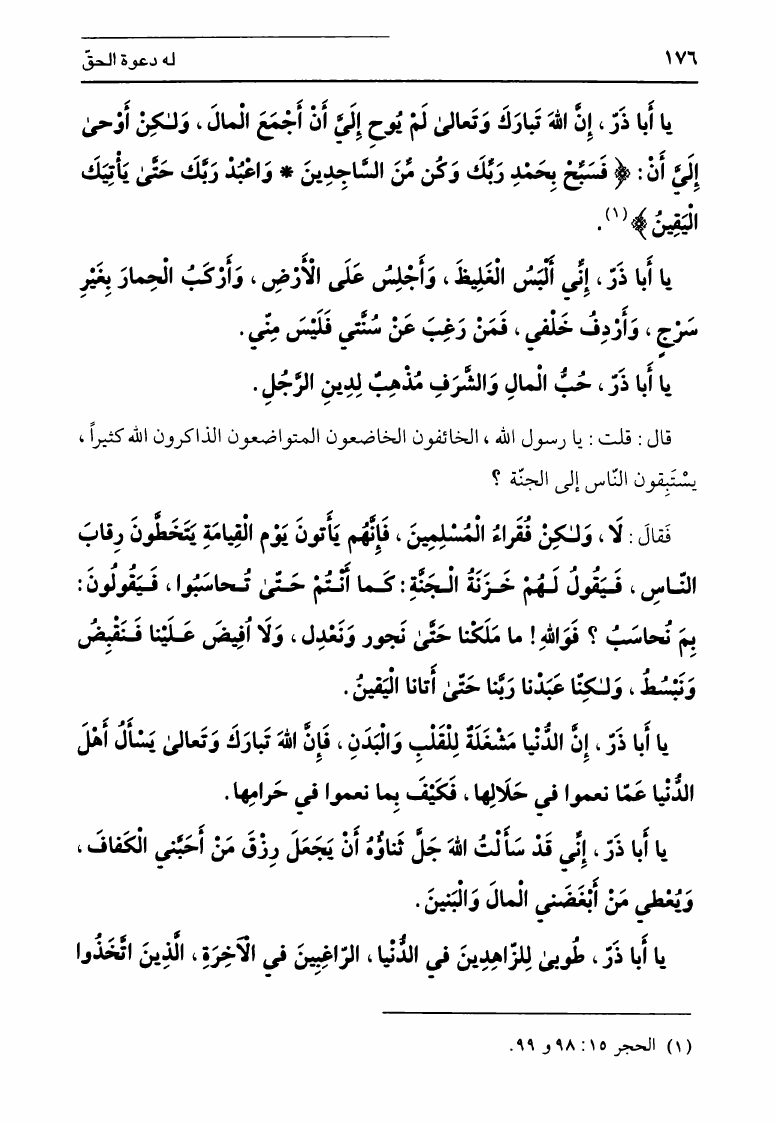 ١٧٦ له دعوة الحقّ
يا أَبا ذَرّ ، إِنَّ اللهَ تَبارَكَ وَتَعالىٰ لَمْ يُوحِ إِلَيَّ أَنْ أَجْمَعَ الْمالَ ، وَلٰكِنْ أَوْحىٰ
إِلَيَّ أَنْ : ﴿ فَسَبِّحْ بِحَمْدِ رَبِّكَ وَكُن مِّنَ السَّاجِدِينَ * وَاعْبُدْ رَبَّكَ حَتَّىٰ يَأْتِيَكَ
الْيَقِينُ ﴾(١).
يا أَبا ذَرّ ، إِنِّي أَلْبَسُ الْغَلِيظَ ، وَأَجْلِسُ عَلَى الْأَرْضِ ، وَأَرْكَبُ الْحِمارَ بِغَيْرِ
سَرْجٍ ، وَأَرْدِفُ خَلْفي ، فَمَنْ رَغِبَ عَنْ سُنَّتي فَلَيْسَ مِنّي .
يا أَبا ذَرّ ، حُبُّ الْمالِ وَالشَّرَفِ مُذْهِبٌ لِدِينِ الرَّجُلِ .
قال : قلت : يا رسول الله ، الخائفون الخاضعون المتواضعون الذاكرون الله كثيراً ،
يسْتَبِقون النّاس إلى الجنّة ؟
فَقالَ : لَا ، وَلٰكِنْ فُقَراءُ الْمُسْلِمِينَ ، فَإِنَّهُم يَأْتونَ يَوْم الْقِيامَةِ يَتَخَطَّونَ رِقابَ
النّاسِ ، فَيَقُولُ لَهُمْ خَزَنَةُ الْجَنَّةِ : كَما أَنْتُمْ حَتّىٰ تُحاسَبُوا ، فَيَقُولُونَ :
بِمَ نُحاسَبُ ؟ فَوَاللهِ ! ما مَلَكْنا حَتَّىٰ نَجور وَنَعْدِل ، وَلَا أُفِيضَ عَلَيْنا فَنَقْبِضُ
وَنَبْسُطُ ، وَلٰكِنّا عَبَدْنا رَبَّنا حَتّىٰ أَتانا الْيَقينُ .
يا أَبا ذَرّ ، إِنَّ الدُّنْيا مَشْغَلَةٌ لِلْقَلْبِ وَالْبَدَنِ ، فَإِنَّ اللهَ تَبارَكَ وَتَعالىٰ يَسْأَلُ أَهْلَ
الدُّنْيا عَمّا نعموا في حَلَالِها ، فَكَيْفَ بِما نعموا في حَرامِها .
يا أَبا ذَرّ ، إِنِّي قَدْ سَأَلْتُ اللهَ جَلَّ ثَناؤُهُ أَنْ يَجَعَلَ رِزْقَ مَنْ أَحَبَّني الْكَفافَ ،
وَيُعْطي مَنْ أَبْغَضَني الْمالَ وَالْبَنينَ .
يا أَبا ذَرّ ، طُوبىٰ لِلزّاهِدِينَ في الدُّنْيا ، الرّاغِبِينَ في الْآخِرَةِ ، الَّذِينَ اتَّخَذُوا
(١) الحجر ١٥ : ٩٨ و ٩٩ .